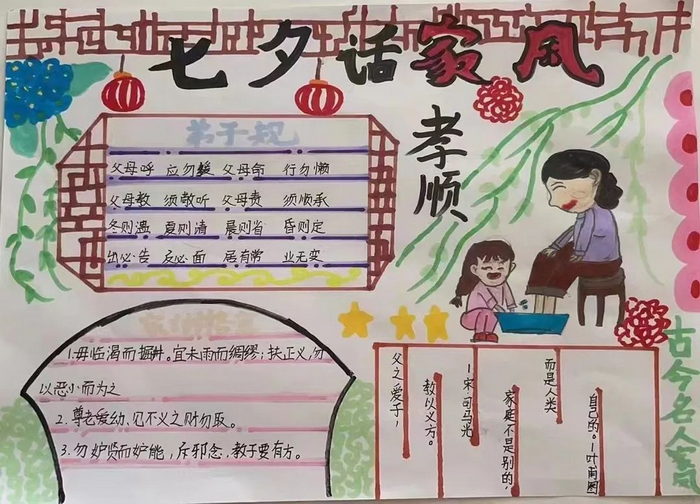 七夕话家风
孝顺
弟子规
父母呼 应勿缓 父母命 行勿懒
父母教 须敬听 父母责 须顺承
冬则温 夏则清 晨则省 昏则定
出必告 反必面 居有常 业无变
1.毋临渴而掘井。宜未雨而绸缪；扶正义，勿
以恶小而为之
2.尊老爱幼、见不义之财勿取。
3.勿妒贤而妒能，斥邪念，教子要有方。
父之爱子，
教以义方。
—宋司马光
家庭不是别的，
而是人类
自己的。—叶甫图
古今名人家